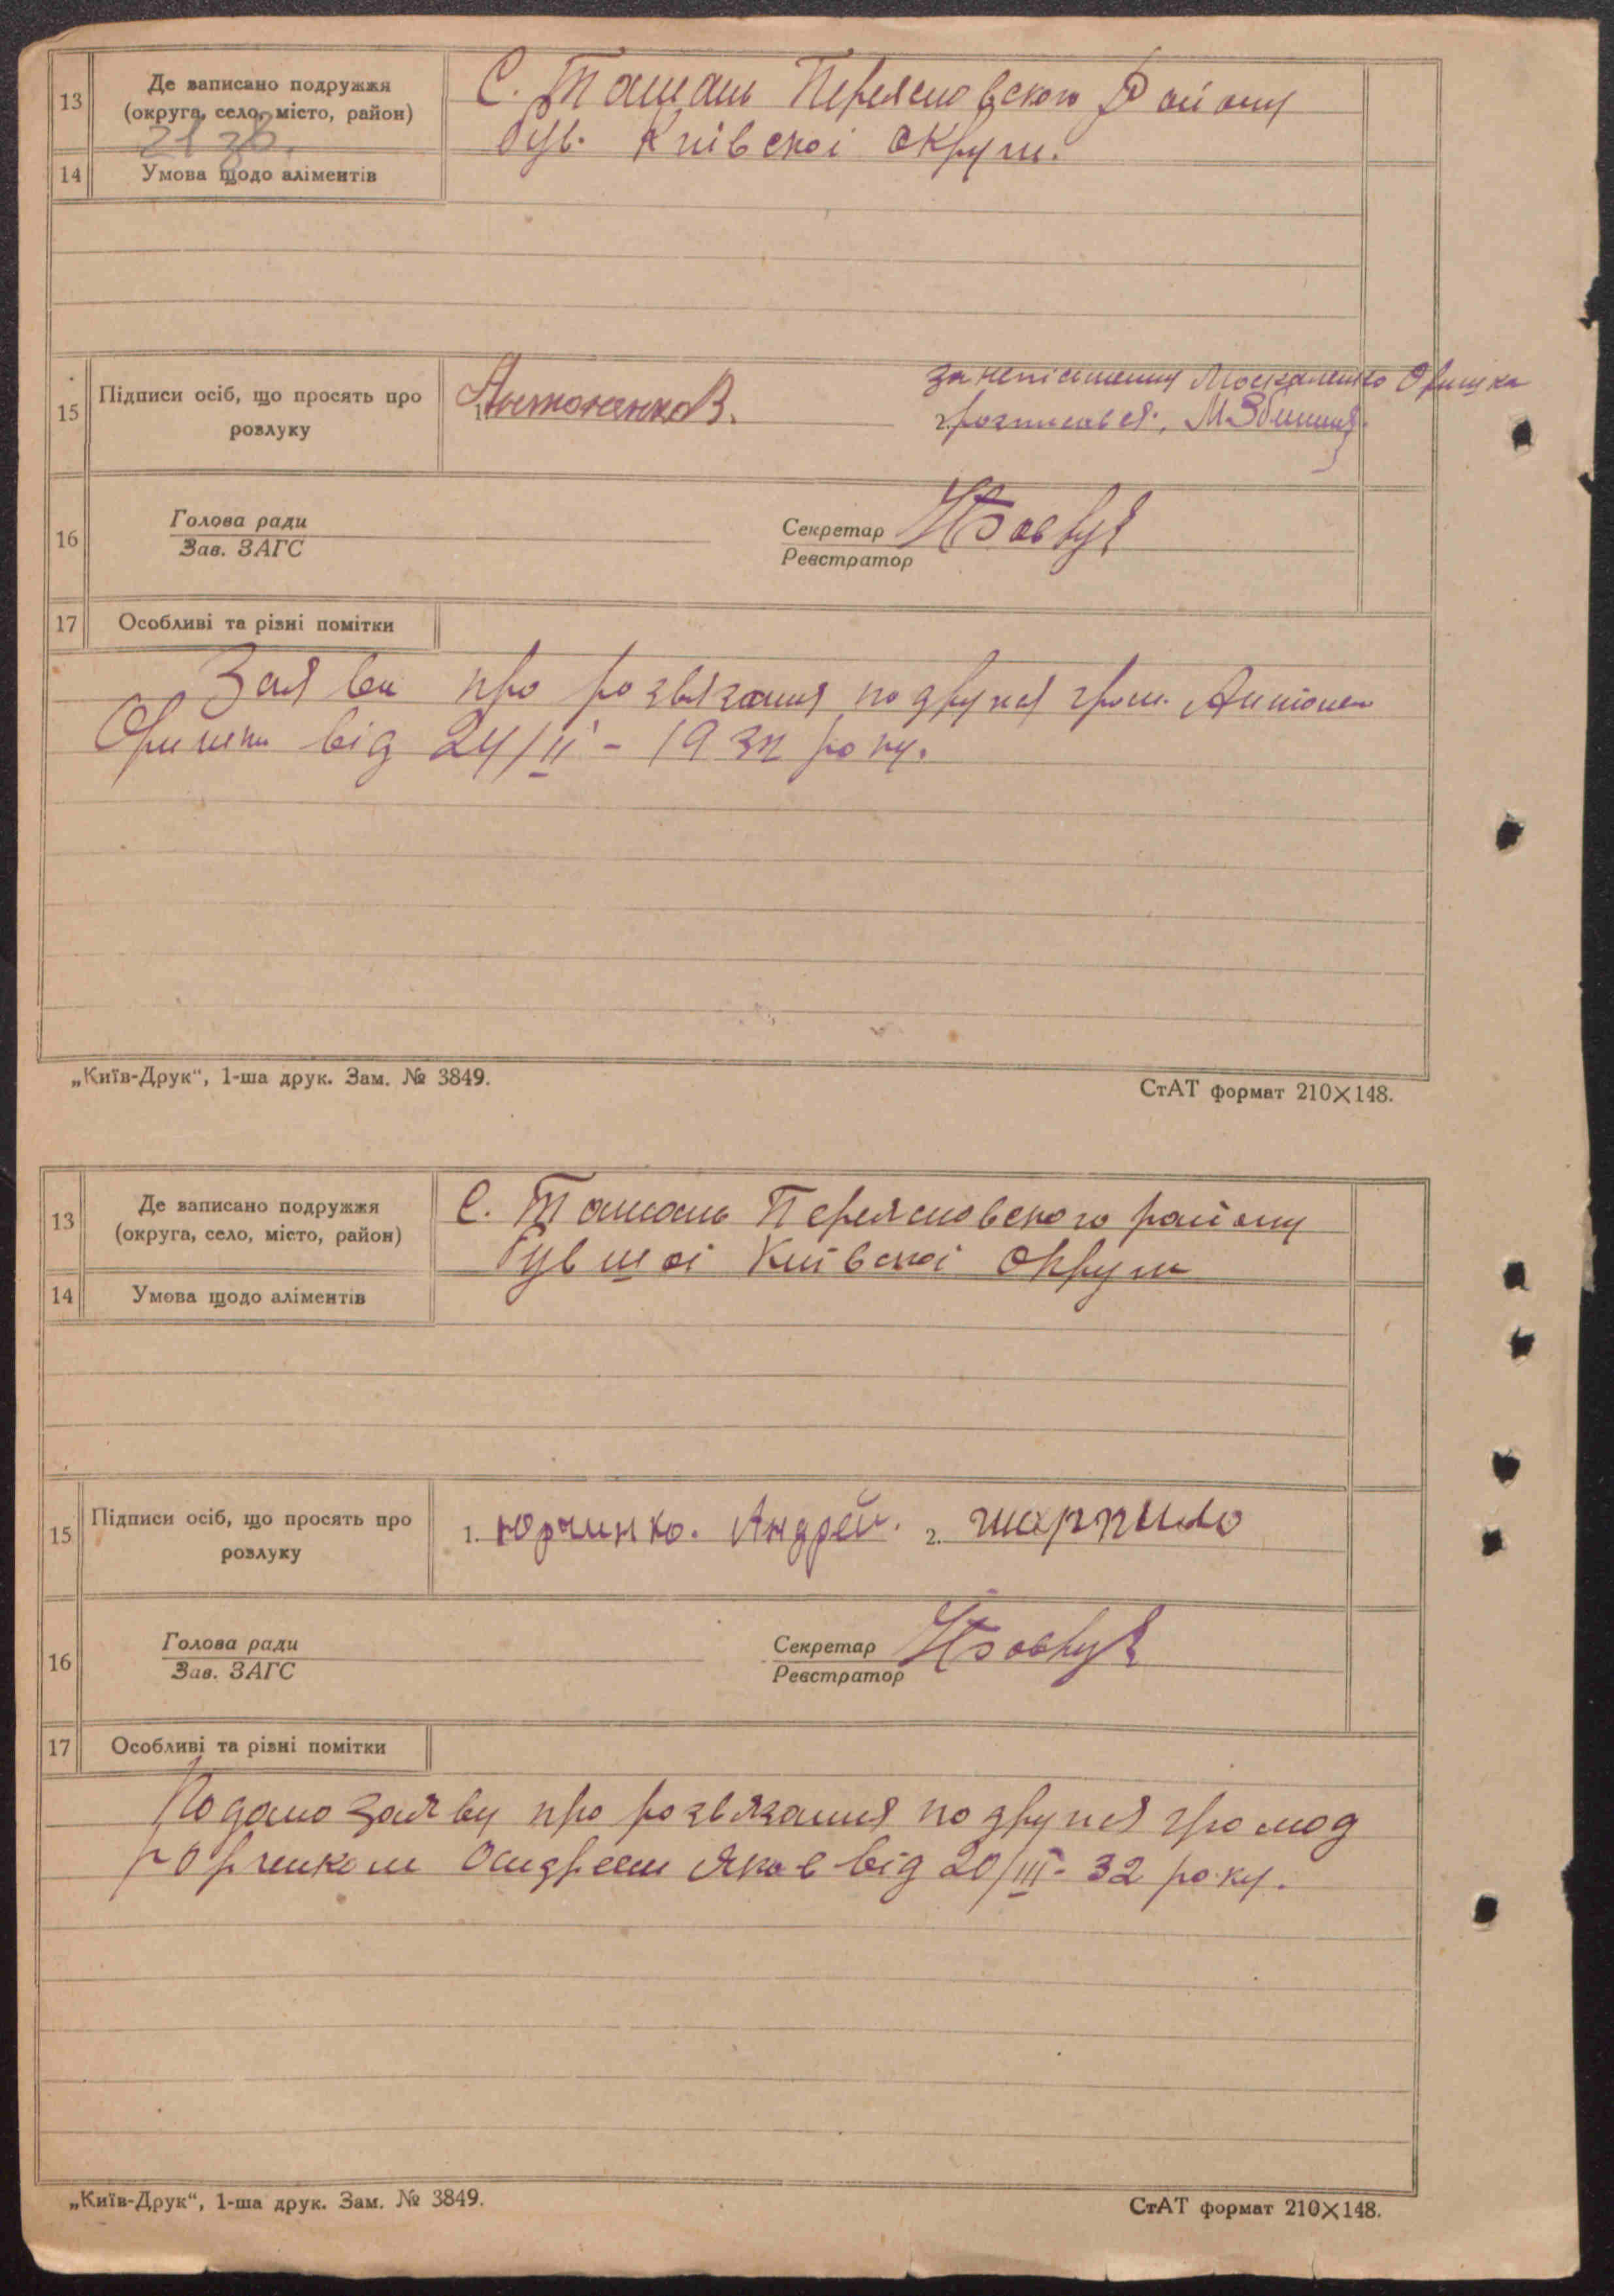 13
Де записано подружжя
(округа, село, місто, район)
С. Ташань Переясловского Району
був. Київскоі округи.
21 зв.
14
Умова щодо аліментів
15
Підписи осіб, що просять про
розлуку
1. Антоненко В.
за непісьменну Москаленко Оришка
2. розписався:
16
Голова ради
Зав. ЗАГС
Секретар
Реєстратор
17
Особливі та різні помітки
Заява про розвязання подружя гром. Антонен
Оришки від 24/II - 1932 року.
„Київ-Друк“, 1-ша друк. Зам. № 3849.
СтАТ формат 210×148.
13
Де записано подружжя
(округа, село, місто, район)
С. Ташань Переясловского району
бувшоі Київскоі округи
14
Умова щодо аліментів
15
Підписи осіб, що просять про
розлуку
1. Юрчинко. Андрей. 2. шарпило
16
Голова ради
Зав. ЗАГС
Секретар
Реєстратор
17
Особливі та різні помітки
Подано заяву про розвязання подружя громад
Юрченком Андреем Яков від 20/III - 32 року.
„Київ-Друк“, 1-ша друк. Зам. № 3849.
СтАТ формат 210×148.